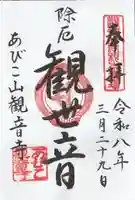 奉拝
令和八年
三月二十九日
除厄
観世音
あびこ山観音寺